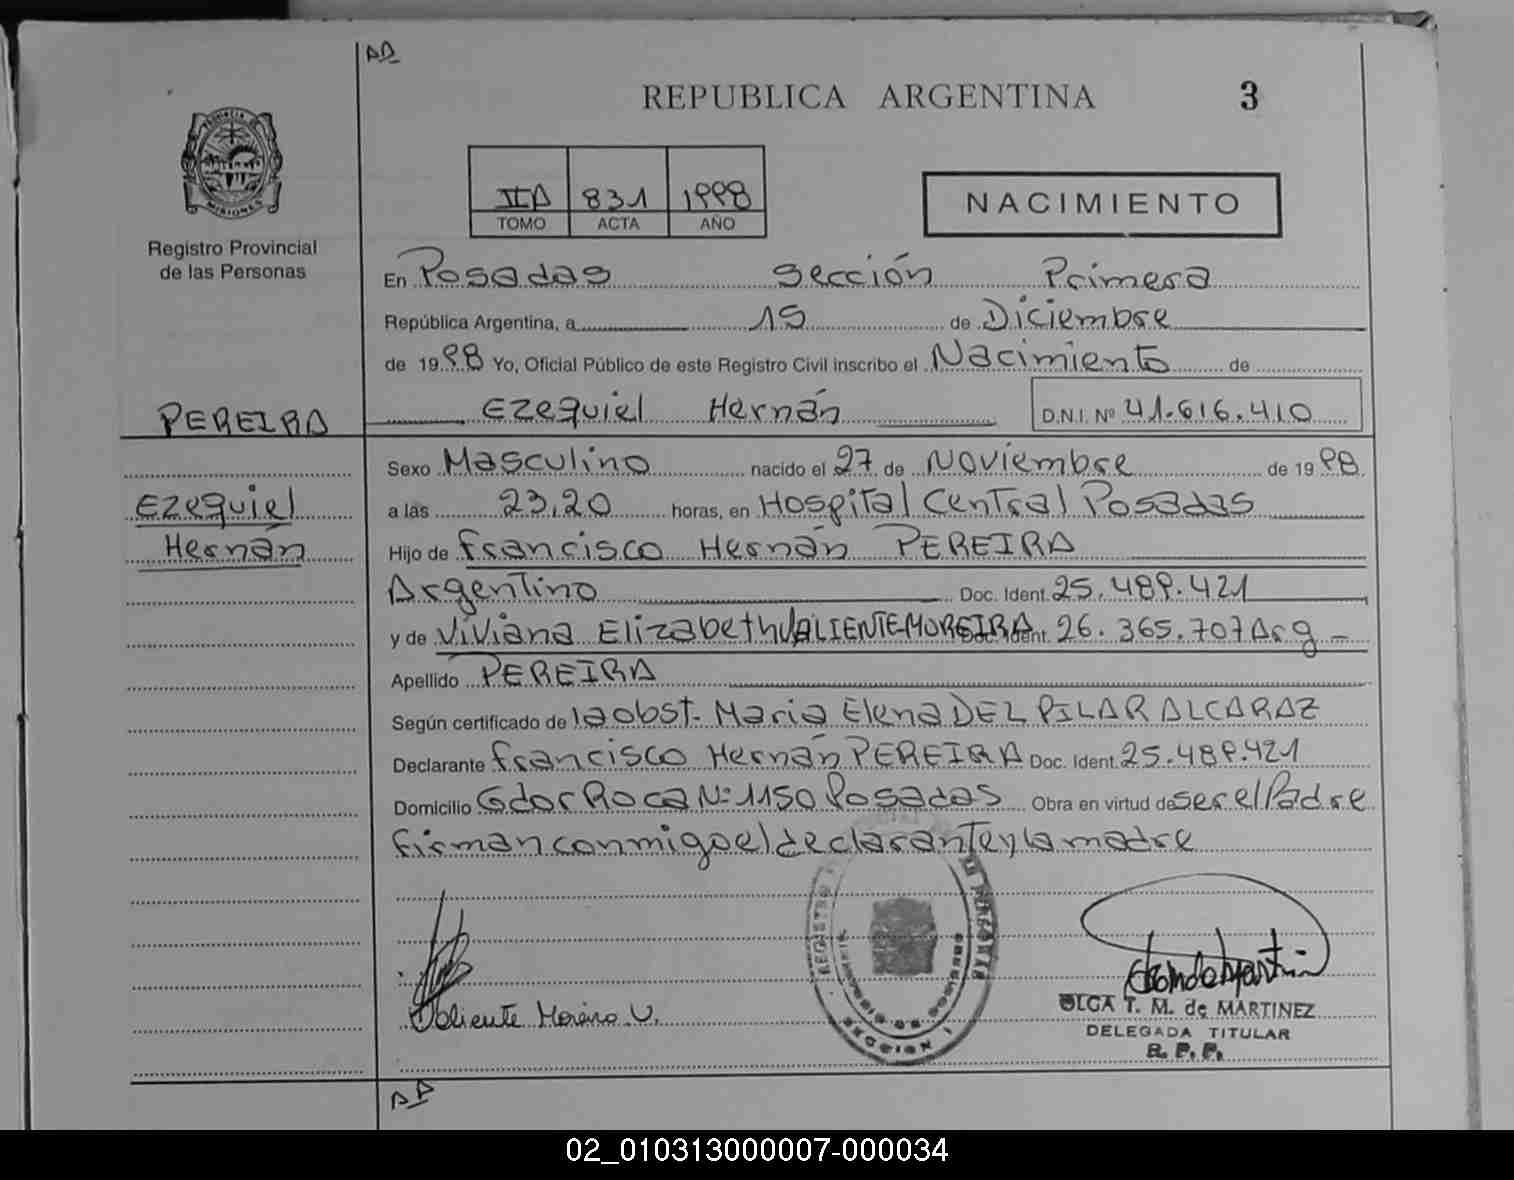 REPUBLICA ARGENTINA
3
IIA 831 1998
TOMO ACTA AÑO
NACIMIENTO
PROVINCIA DE MISIONES
Registro Provincial
de las Personas
En Posadas Sección Primera
República Argentina, a 15 de Diciembre
de 1998 Yo, Oficial Público de este Registro Civil inscribo el Nacimiento de
PEREIRA
Ezequiel Hernán D.N.I. Nº 41.616.410
Sexo Masculino nacido el 27 de Noviembre de 1998
Ezequiel
a las 23,20 horas, en Hospital Central Posadas
Hernán
Hijo de Francisco Hernán PEREIRA
Argentino Doc. Ident. 25.489.421
y de Viviana Elizabeth VALIENTE MOREIRA Doc. Ident. 26.365.707 Arg
Apellido PEREIRA
Según certificado de la obst. Maria Elena DEL PILAR ALCARAZ
Declarante Francisco Hernán PEREIRA Doc. Ident. 25.489.421
Domicilio Gdor Roca Nº 1150 Posadas Obra en virtud de ser el Padre
firman conmigo el declarante y la madre
REGISTRO
SECCION 1
Valiente V.
OLGA T. M. de MARTINEZ
DELEGADA TITULAR
R. P. P.
02_010313000007-000034